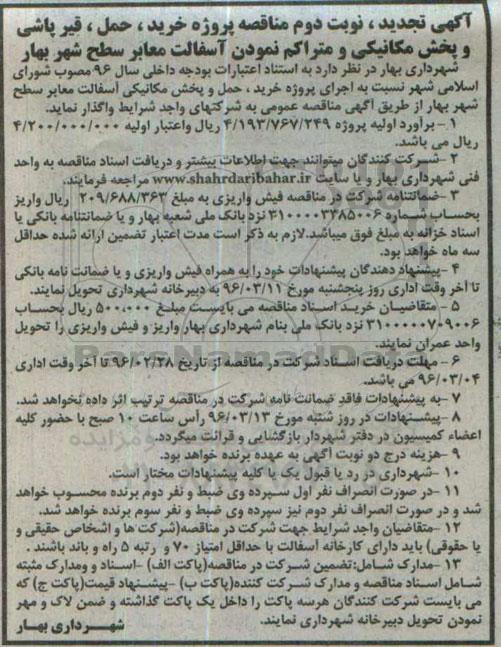 آگهی تجدید ، نوبت دوم مناقصه پروژه خرید ، حمل ، قیر پاشی
و پخش مکانیکی و متراکم نمودن آسفالت معابر سطح شهر بهار
شهرداری بهار در نظر دارد به استناد اعتبارات بودجه داخلی سال ۹۶ مصوب شورای
اسلامی شهر نسبت به اجرای پروژه خرید ، حمل و پخش مکانیکی آسفالت معابر سطح
شهر بهار از طریق آگهی مناقصه عمومی به شرکتهای واجد شرایط واگذار نماید.
۱ - برآورد اولیه پروژه ۴/۱۹۳/۷۶۷/۲۴۹ ریال واعتبار اولیه ۴/۲۰۰/۰۰۰/۰۰۰
ریال می باشد.
۲ -شرکت کنندگان میتوانند جهت اطلاعات بیشتر و دریافت اسناد مناقصه به واحد
فنی شهرداری بهار و یا سایت www.shahrdaribahar.ir مراجعه فرمایند.
۳ -ضمانتنامه شرکت در مناقصه فیش واریزی به مبلغ ۲۰۹/۶۸۸/۳۶۳ ریال واریز
بحساب شماره ۳۱۰۰۰۰۳۳۸۵۰۰۶ نزد بانک ملی شعبه بهار و یا ضمانتنامه بانکی یا
اسناد خزانه به مبلغ فوق میباشد.لازم به ذکر است مدت اعتبار تضمین ارائه شده حداقل
سه ماه خواهد بود.
۴ -پیشنهاد دهندگان پیشنهادات خود را به همراه فیش واریزی و یا ضمانت نامه بانکی
تا آخر وقت اداری روز پنجشنبه مورخ ۹۶/۰۳/۱۱ به دبیرخانه شهرداری تحویل نمایند.
۵ -متقاضیان خرید اسناد مناقصه می بایست مبلغ ۵۰۰،۰۰۰ ریال بحساب
۳۱۰۰۰۰۰۷۰۹۰۰۶ نزد بانک ملی بنام شهرداری بهار واریز و فیش واریزی را تحویل
واحد عمران نمایند.
۶ -مهلت دریافت اسناد شرکت در مناقصه از تاریخ ۹۶/۰۲/۲۸ تا آخر وقت اداری
۹۶/۰۳/۰۴ می باشد.
۷ -به پیشنهادات فاقد ضمانت نامه شرکت در مناقصه ترتیب اثر داده نخواهد شد.
۸ -پیشنهادات در روز شنبه مورخ ۹۶/۰۳/۱۳ رأس ساعت ۱۰ صبح با حضور کلیه
اعضاء کمیسیون در دفتر شهردار بازگشایی و قرائت میگردد.
۹ -هزینه درج دو نوبت آگهی به عهده برنده خواهد بود.
۱۰ -شهرداری در رد یا قبول یک یا کلیه پیشنهادات مختار است.
۱۱ -در صورت انصراف نفر اول سپرده وی ضبط و نفر دوم برنده محسوب خواهد
شد و در صورت انصراف نفر دوم نیز سپرده وی ضبط و نفر سوم برنده خواهد شد.
۱۲ -متقاضیان واجد شرایط جهت شرکت در مناقصه(شرکت ها و اشخاص حقیقی و
یا حقوقی) باید دارای کارخانه آسفالت با حداقل امتیاز ۷۰ و رتبه ۵ راه و باند باشند .
۱۳ -مدارک شامل:تضمین شرکت در مناقصه(پاکت الف) -اسناد و مدارک مثبته
شامل اسناد مناقصه و مدارک شرکت کننده(پاکت ب) -پیشنهاد قیمت(پاکت ج) که
می بایست شرکت کنندگان هرسه پاکت را داخل یک پاکت گذاشته و ضمن لاک و مهر
نمودن تحویل دبیرخانه شهرداری نمایند.
شهرداری بهار